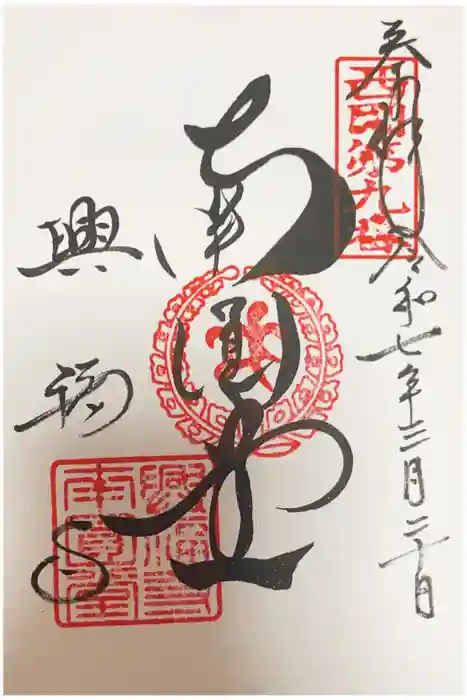 奉拝 令和七年三月二十日
西国第九番
南圓堂
興福寺
興福寺
南圓堂